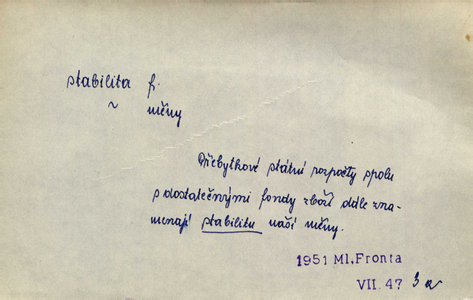 stabilita f.
~ měny
Přebytkové státní rozpočty spolu
s dostatečnými fondy zboží dále zna-
menají stabilitu naší měny.
1951 Ml.Fronta
VII. 47 3a